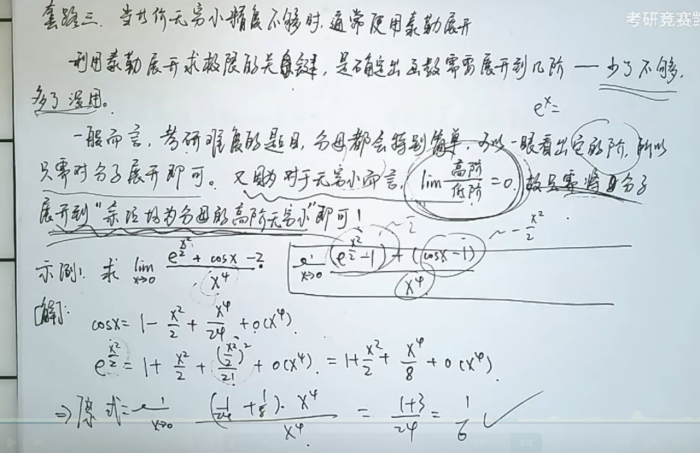 考研竞赛凯
套路三. 当等价无穷小精度不够时, 通常使用泰勒展开
利用泰勒展开求极限的关键, 是确定出函数需要展开到几阶 —— 少了不够,
多了没用。
e^x=
一般而言, 考研难度的题目, 分母都会特别简单, 可以一眼看出它的阶, 所以
只需对分子展开即可。又因为对于无穷小而言, lim 高阶/低阶 = 0. 故只需将分子
展开到“余项均为分母的高阶无穷小”即可!
示例1. 求 lim x→0 (e^{x²/2} + cosx - 2)/x⁴
lim x→0 ((e^{x²/2} - 1) + (cosx - 1))/x⁴ ~ - x²/2
[解]: cosx = 1 - x²/2 + x⁴/24 + o(x⁴)
e^{x²/2} = 1 + x²/2 + (x²/2)²/2! + o(x⁴) = 1 + x²/2 + x⁴/8 + o(x⁴)
⇒ 原式 = lim x→0 ((1/24 + 1/8)·x⁴)/x⁴ = (1+3)/24 = 1/6 ✓